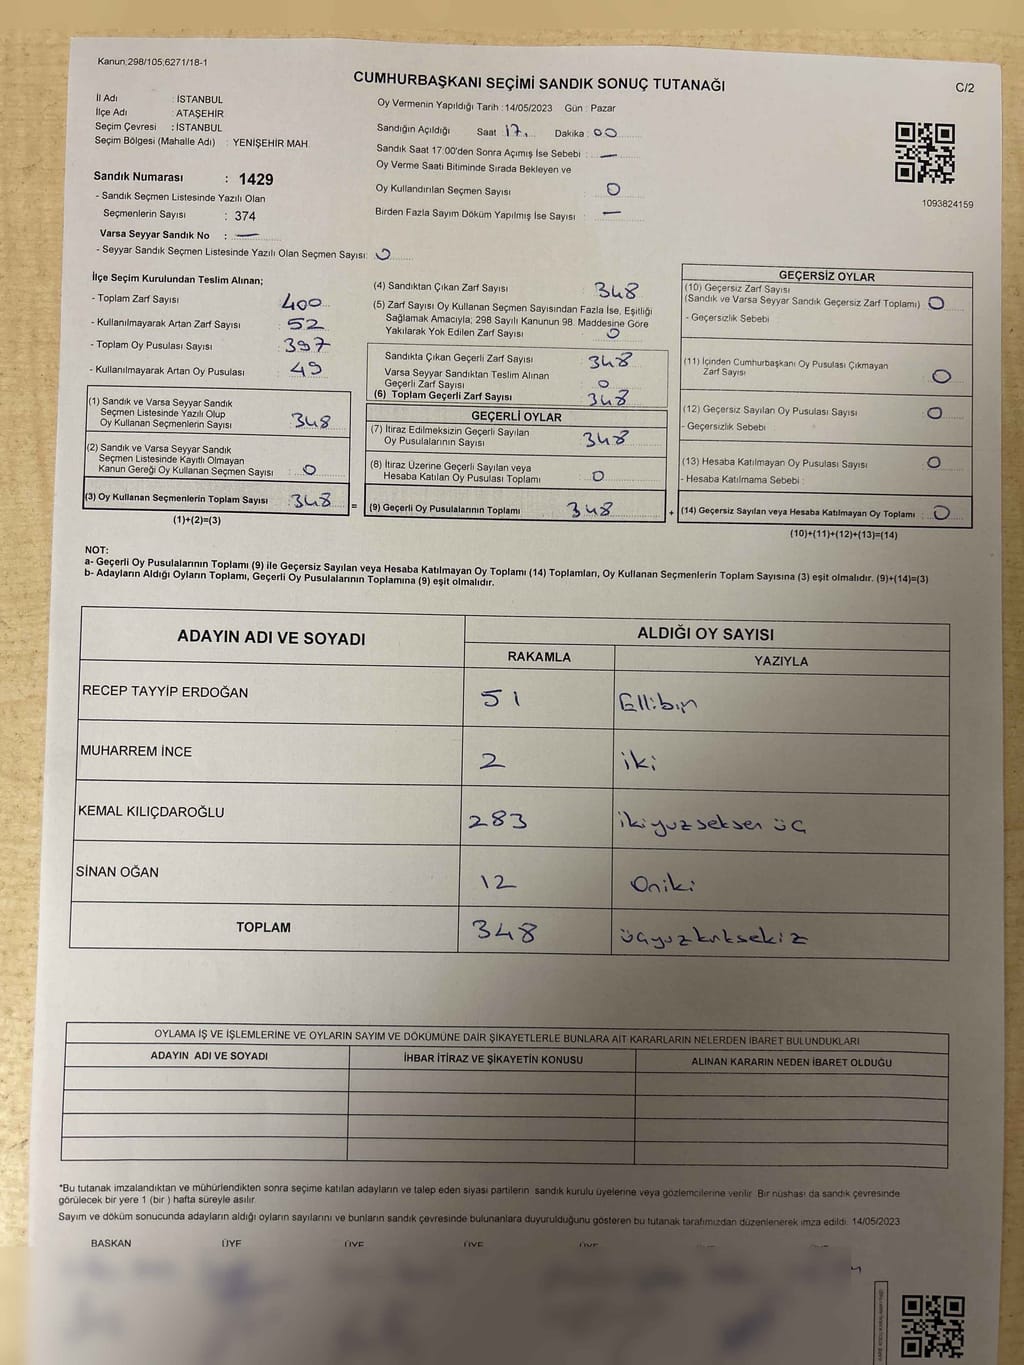 Kanun;298/105;6271/18-1
CUMHURBAŞKANI SEÇİMİ SANDIK SONUÇ TUTANAĞI
C/2
İl Adı : İSTANBUL
İlçe Adı : ATAŞEHİR
Seçim Çevresi : İSTANBUL
Seçim Bölgesi (Mahalle Adı) : YENİŞEHİR MAH.
Sandık Numarası : 1429
- Sandık Seçmen Listesinde Yazılı Olan
Seçmenlerin Sayısı : 374
Varsa Seyyar Sandık No : —
- Seyyar Sandık Seçmen Listesinde Yazılı Olan Seçmen Sayısı: 0
Oy Vermenin Yapıldığı Tarih : 14/05/2023 Gün : Pazar
Sandığın Açıldığı Saat 17 Dakika : 00
Sandık Saat 17:00'den Sonra Açımış İse Sebebi : —
Oy Verme Saati Bitiminde Sırada Bekleyen ve
Oy Kullandırılan Seçmen Sayısı 0
Birden Fazla Sayım Döküm Yapılmış İse Sayısı : —
1093824159
İlçe Seçim Kurulundan Teslim Alınan;
- Toplam Zarf Sayısı 400
- Kullanılmayarak Artan Zarf Sayısı : 52
- Toplam Oy Pusulası Sayısı : 397
- Kullanılmayarak Artan Oy Pusulası : 49
(1) Sandık ve Varsa Seyyar Sandık
Seçmen Listesinde Yazılı Olup
Oy Kullanan Seçmenlerin Sayısı : 348
(2) Sandık ve Varsa Seyyar Sandık
Seçmen Listesinde Kayıtlı Olmayan
Kanun Gereği Oy Kullanan Seçmen Sayısı : 0
(3) Oy Kullanan Seçmenlerin Toplam Sayısı : 348 =
(1)+(2)=(3)
(4) Sandıktan Çıkan Zarf Sayısı 348
(5) Zarf Sayısı Oy Kullanan Seçmen Sayısından Fazla İse, Eşitliği
Sağlamak Amacıyla; 298 Sayılı Kanunun 98. Maddesine Göre
Yakılarak Yok Edilen Zarf Sayısı 0
Sandıkta Çıkan Geçerli Zarf Sayısı 348
Varsa Seyyar Sandıktan Teslim Alınan
Geçerli Zarf Sayısı 0
(6) Toplam Geçerli Zarf Sayısı 348
GEÇERLİ OYLAR
(7) İtiraz Edilmeksizin Geçerli Sayılan
Oy Pusulalarının Sayısı 348
(8) İtiraz Üzerine Geçerli Sayılan veya
Hesaba Katılan Oy Pusulası Toplamı 0
(9) Geçerli Oy Pusulalarının Toplamı 348 +
GEÇERSİZ OYLAR
(10) Geçersiz Zarf Sayısı
(Sandık ve Varsa Seyyar Sandık Geçersiz Zarf Toplamı) 0
- Geçersizlik Sebebi :
(11) İçinden Cumhurbaşkanı Oy Pusulası Çıkmayan
Zarf Sayısı 0
(12) Geçersiz Sayılan Oy Pusulası Sayısı 0
- Geçersizlik Sebebi :
(13) Hesaba Katılmayan Oy Pusulası Sayısı 0
- Hesaba Katılmama Sebebi :
(14) Geçersiz Sayılan veya Hesaba Katılmayan Oy Toplamı : 0
(10)+(11)+(12)+(13)=(14)
NOT:
a- Geçerli Oy Pusulalarının Toplamı (9) ile Geçersiz Sayılan veya Hesaba Katılmayan Oy Toplamı (14) Toplamları, Oy Kullanan Seçmenlerin Toplam Sayısına (3) eşit olmalıdır. (9)+(14)=(3)
b- Adayların Aldığı Oyların Toplamı, Geçerli Oy Pusulalarının Toplamına (9) eşit olmalıdır.
ADAYIN ADI VE SOYADI ALDIĞI OY SAYISI
RAKAMLA YAZIYLA
RECEP TAYYİP ERDOĞAN 51 Ellibir
MUHARREM İNCE 2 iki
KEMAL KILIÇDAROĞLU 283 ikiyüzseksen üç
SİNAN OĞAN 12 Oniki
TOPLAM 348 üçyüzkırksekiz
OYLAMA İŞ VE İŞLEMLERİNE VE OYLARIN SAYIM VE DÖKÜMÜNE DAİR ŞİKAYETLERLE BUNLARA AİT KARARLARIN NELERDEN İBARET BULUNDUKLARI
ADAYIN ADI VE SOYADI İHBAR İTİRAZ VE ŞİKAYETİN KONUSU ALINAN KARARIN NEDEN İBARET OLDUĞU
*Bu tutanak imzalandıktan ve mühürlendikten sonra seçime katılan adayların ve talep eden siyasi partilerin sandık kurulu üyelerine veya gözlemcilerine verilir. Bir nüshası da sandık çevresinde
görülecek bir yere 1 (bir ) hafta süreyle asılır.
Sayım ve döküm sonucunda adayların aldığı oyların sayılarını ve bunların sandık çevresinde bulunanlara duyurulduğunu gösteren bu tutanak tarafımızdan düzenlenerek imza edildi. 14/05/2023
BAŞKAN ÜYE ÜYE ÜYE ÜYE